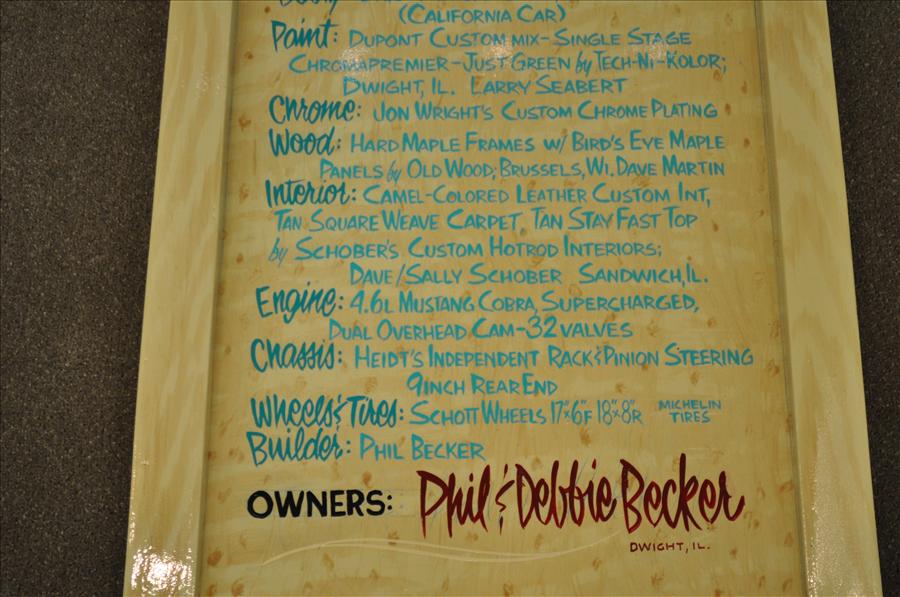 (California Car)
Paint: Dupont Custom mix - Single Stage
Chromapremier - Just Green by Tech-Ni-Kolor;
Dwight, IL. Larry Seabert
Chrome: Jon Wright's Custom Chrome Plating
Wood: Hard Maple Frames w/ Bird's Eye Maple
Panels by Old Wood; Brussels, Wi. Dave Martin
Interior: Camel-Colored Leather Custom Int,
Tan Square Weave Carpet, Tan Stay Fast Top
by Schober's Custom Hotrod Interiors;
Dave/Sally Schober Sandwich, IL.
Engine: 4.6L Mustang Cobra, Supercharged,
Dual Overhead Cam-32 valves
Chassis: Heidt's Independent Rack & Pinion Steering
9inch Rear End
Wheels & Tires: Schott Wheels 17"x6"F 18"x8"R Michelin Tires
Builder: Phil Becker
OWNERS: Phil & Debbie Becker
DWIGHT, IL.